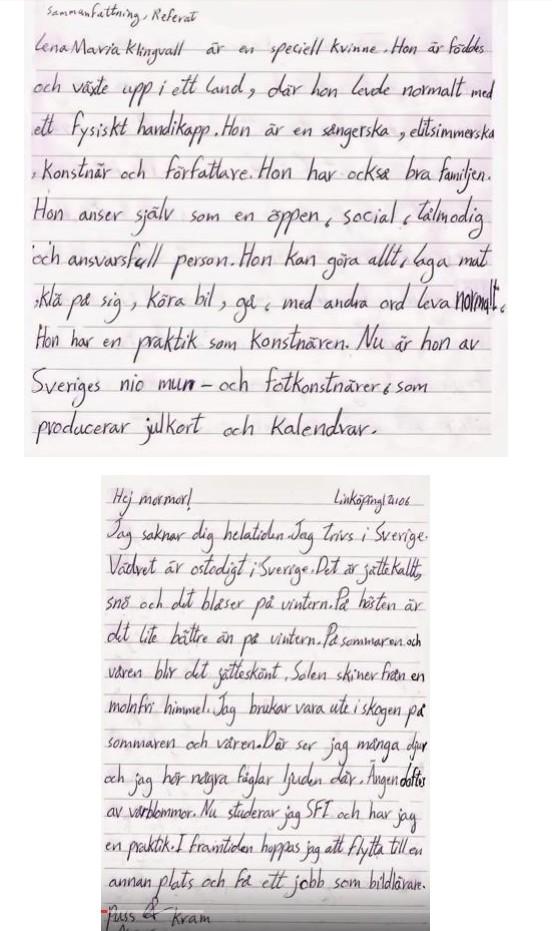 Sammanfattning, Referat
Lena Maria Klingvall är en speciell kvinne. Hon är föddes
och växte upp i ett land, där hon levde normalt med
ett fysiskt handikapp. Hon är en sångerska, elitsimmerska
, Konstnär och författare. Hon har också bra familjen.
Hon anser själv som en öppen, social, tålmodig
och ansvarsfull person. Hon kan göra allt, laga mat
, klä på sig, köra bil, gå, med andra ord leva normalt.
Hon har en praktik som konstnären. Nu är hon av
Sveriges nio mun- och fotkonstnärer, som
producerar julkort och Kalendvar.
Hej mormor! Linköping
Jag saknar dig helatiden. Jag trivs i Sverige.
Vädvet är ostadigt i Sverige. Det är jättekallt,
snö och det blåser på vintern. På hösten är
det lite bättre än på vintern. På sommaren och
våren blir det jätteskönt. Solen skiner från en
molnfri himmel. Jag brukar vara ute i skogen på
sommaren och våren. Där ser jag många djur
och jag hör några fåglar ljuden där. Ängen doftar
av vårblommor. Nu studerar jag SFI och har jag
en praktik. I framtiden hoppas jag att flytta till en
annan plats och få ett jobb som bildlärare.
Puss & kram